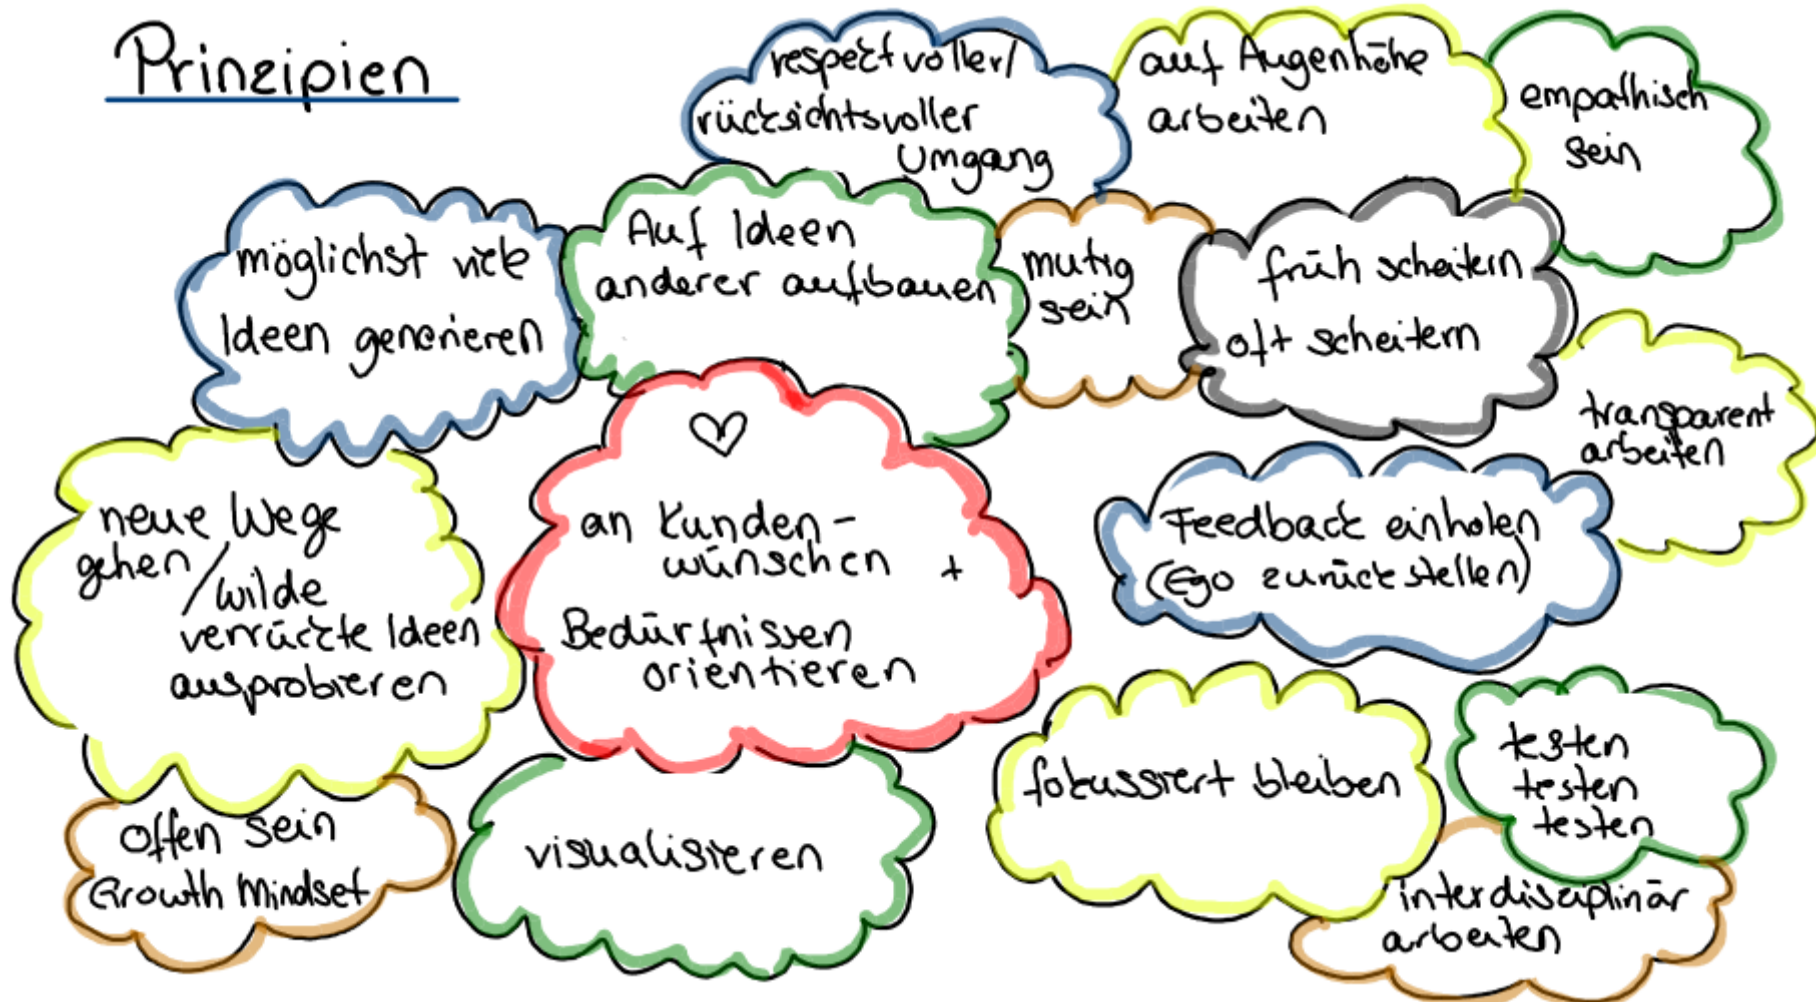 Prinzipien
respektvoller/
rücksichtsvoller
Umgang
auf Augenhöhe
arbeiten
empathisch
sein
möglichst viele
Ideen generieren
Auf Ideen
anderer aufbauen
mutig
sein
früh scheitern
oft scheitern
transparent
arbeiten
neue Wege
gehen /
wilde
verrückte Ideen
ausprobieren
an Kunden-
wünschen +
Bedürfnissen
orientieren
Feedback einholen
(Ego zurückstellen)
offen sein
Growth Mindset
visualisieren
fokussiert bleiben
testen
testen
testen
interdisziplinär
arbeiten